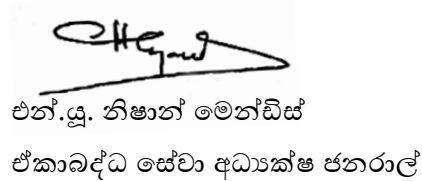 එන්.යූ. නිෂාන් මෙන්ඩිස්
ඒකාබද්ධ සේවා අධ්‍යක්ෂ ජනරාල්